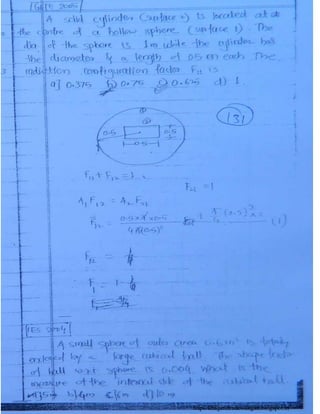 GATE 2005
A solid cylinder (surface 2) is located at
the centre of a hollow sphere (surface 1). The
dia of the sphere is 1m while the cylinder has
the diameter & length of 0.5 on each. The
radiation configuration factor F11 is
a) 0.375 b) 0.75 c) 0.625 d) 1
①
②
0.5
0.5
0.5
131
F11 + F12 = 1
F21 = 1
A1 F12 = A2 F21
F12 =
(1)
F12 = 1/4
= 1 - 1/4
IES 2004
A small sphere of outer area 0.6m² is totally
enclosed by a large cubical hall. The shape factor
of hall w.r.t sphere is 0.004 What is the
measure of the internal side of the cubical hall.